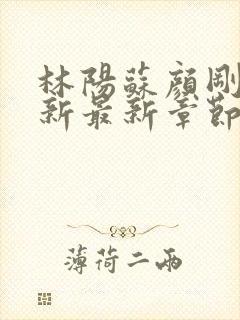 林陽蘇顏剛
新最新章節
薄荷二兩